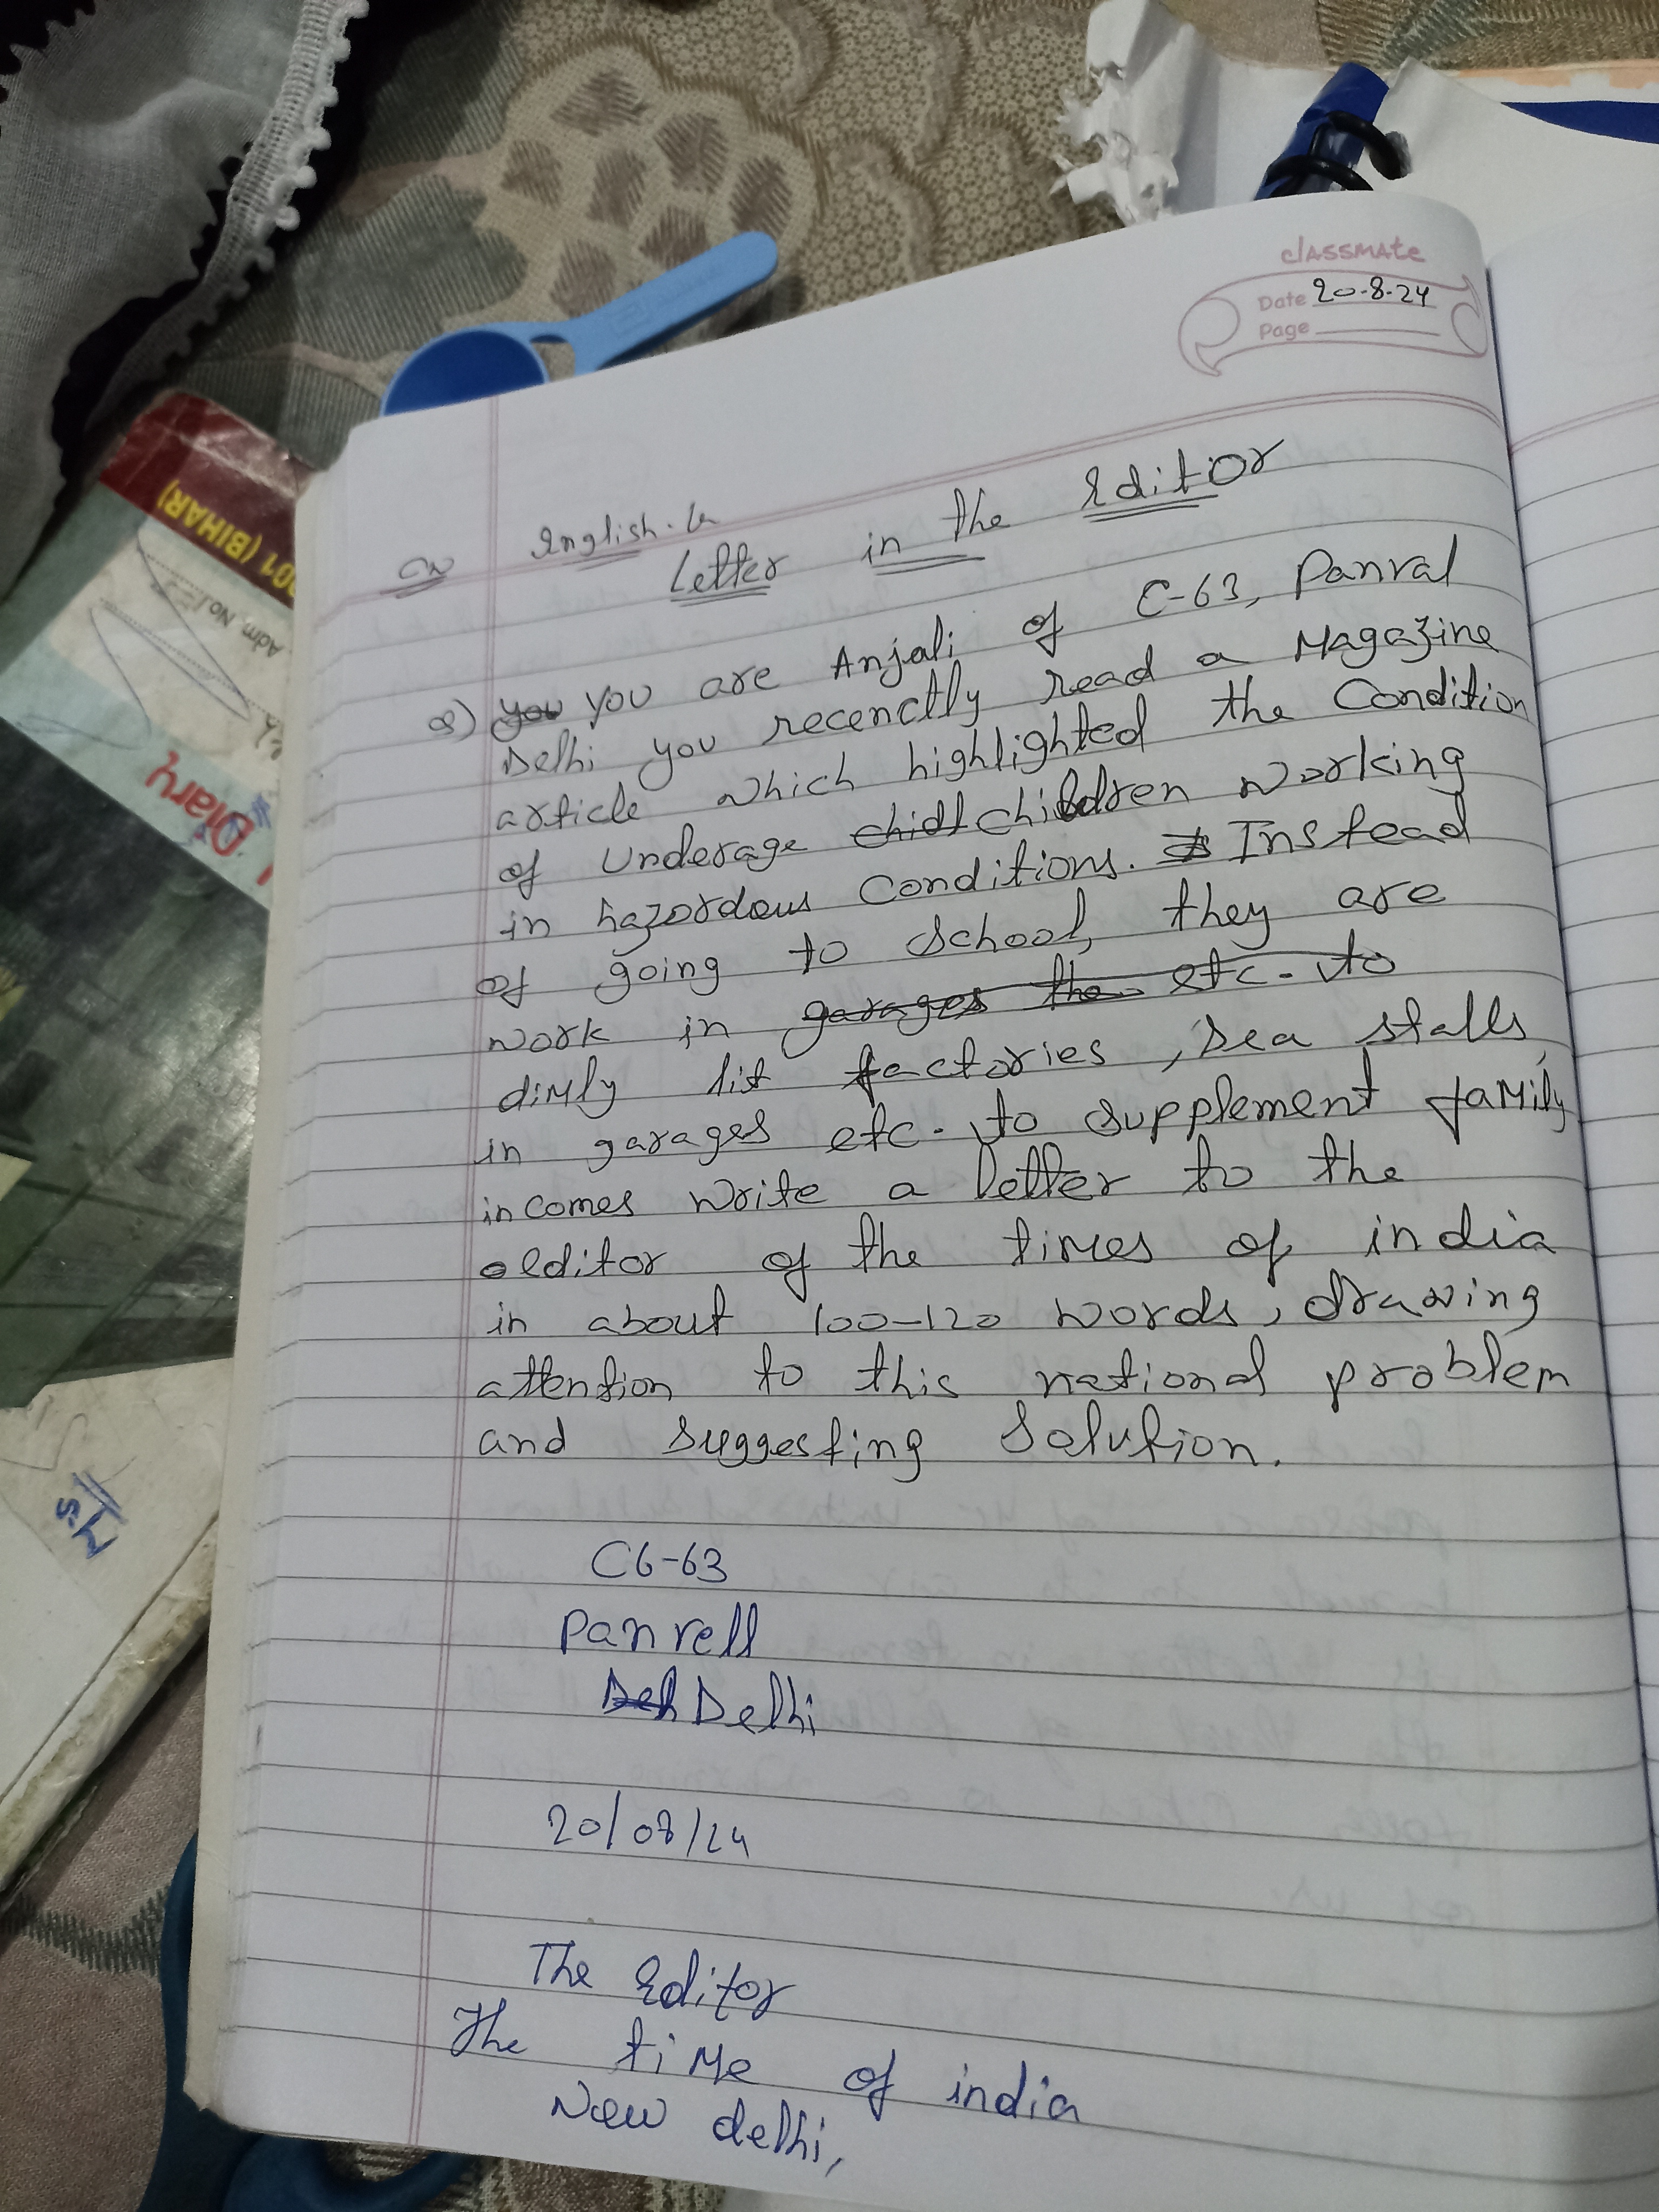 classmate
Date 20-8-24
Page
CW English.
Letter in the Editor
Q) you you are Anjali of C-63, Panval
Delhi you recenctly read a Magazine
article which highlighted the Condition
of Underage children working
in hazordous Conditions. Instead
of going to school, they are
work in garages the etc- to
dimly lit factories, tea stalls,
in garages etc- to supplement family
incomes write a letter to the
editor of the times of india
in about 100-120 words, drawing
attention to this national problem
and suggesting solution.
C6-63
Panvell
Delhi
20/08/24
The Editor
The time of india
New delhi,
001 (BIHAR)
Adm. No.
Diary